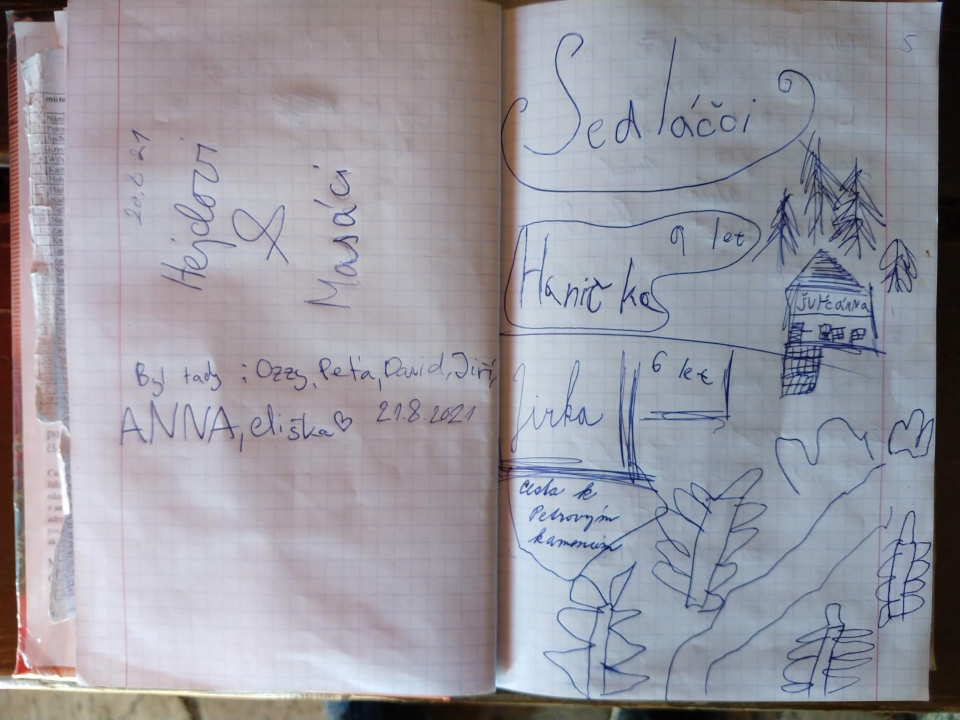 20.8.21
Hejdovi
&
Masáci
Byl tady : Ozzy, Peťa, David, Jiří,
ANNA, eliška♡ 21.8.2021
5
Sedláčci
9 let
Hanička
ŠVÝCÁRNA
Jirka
6 let
Cesta k
Petrovým
kamenům